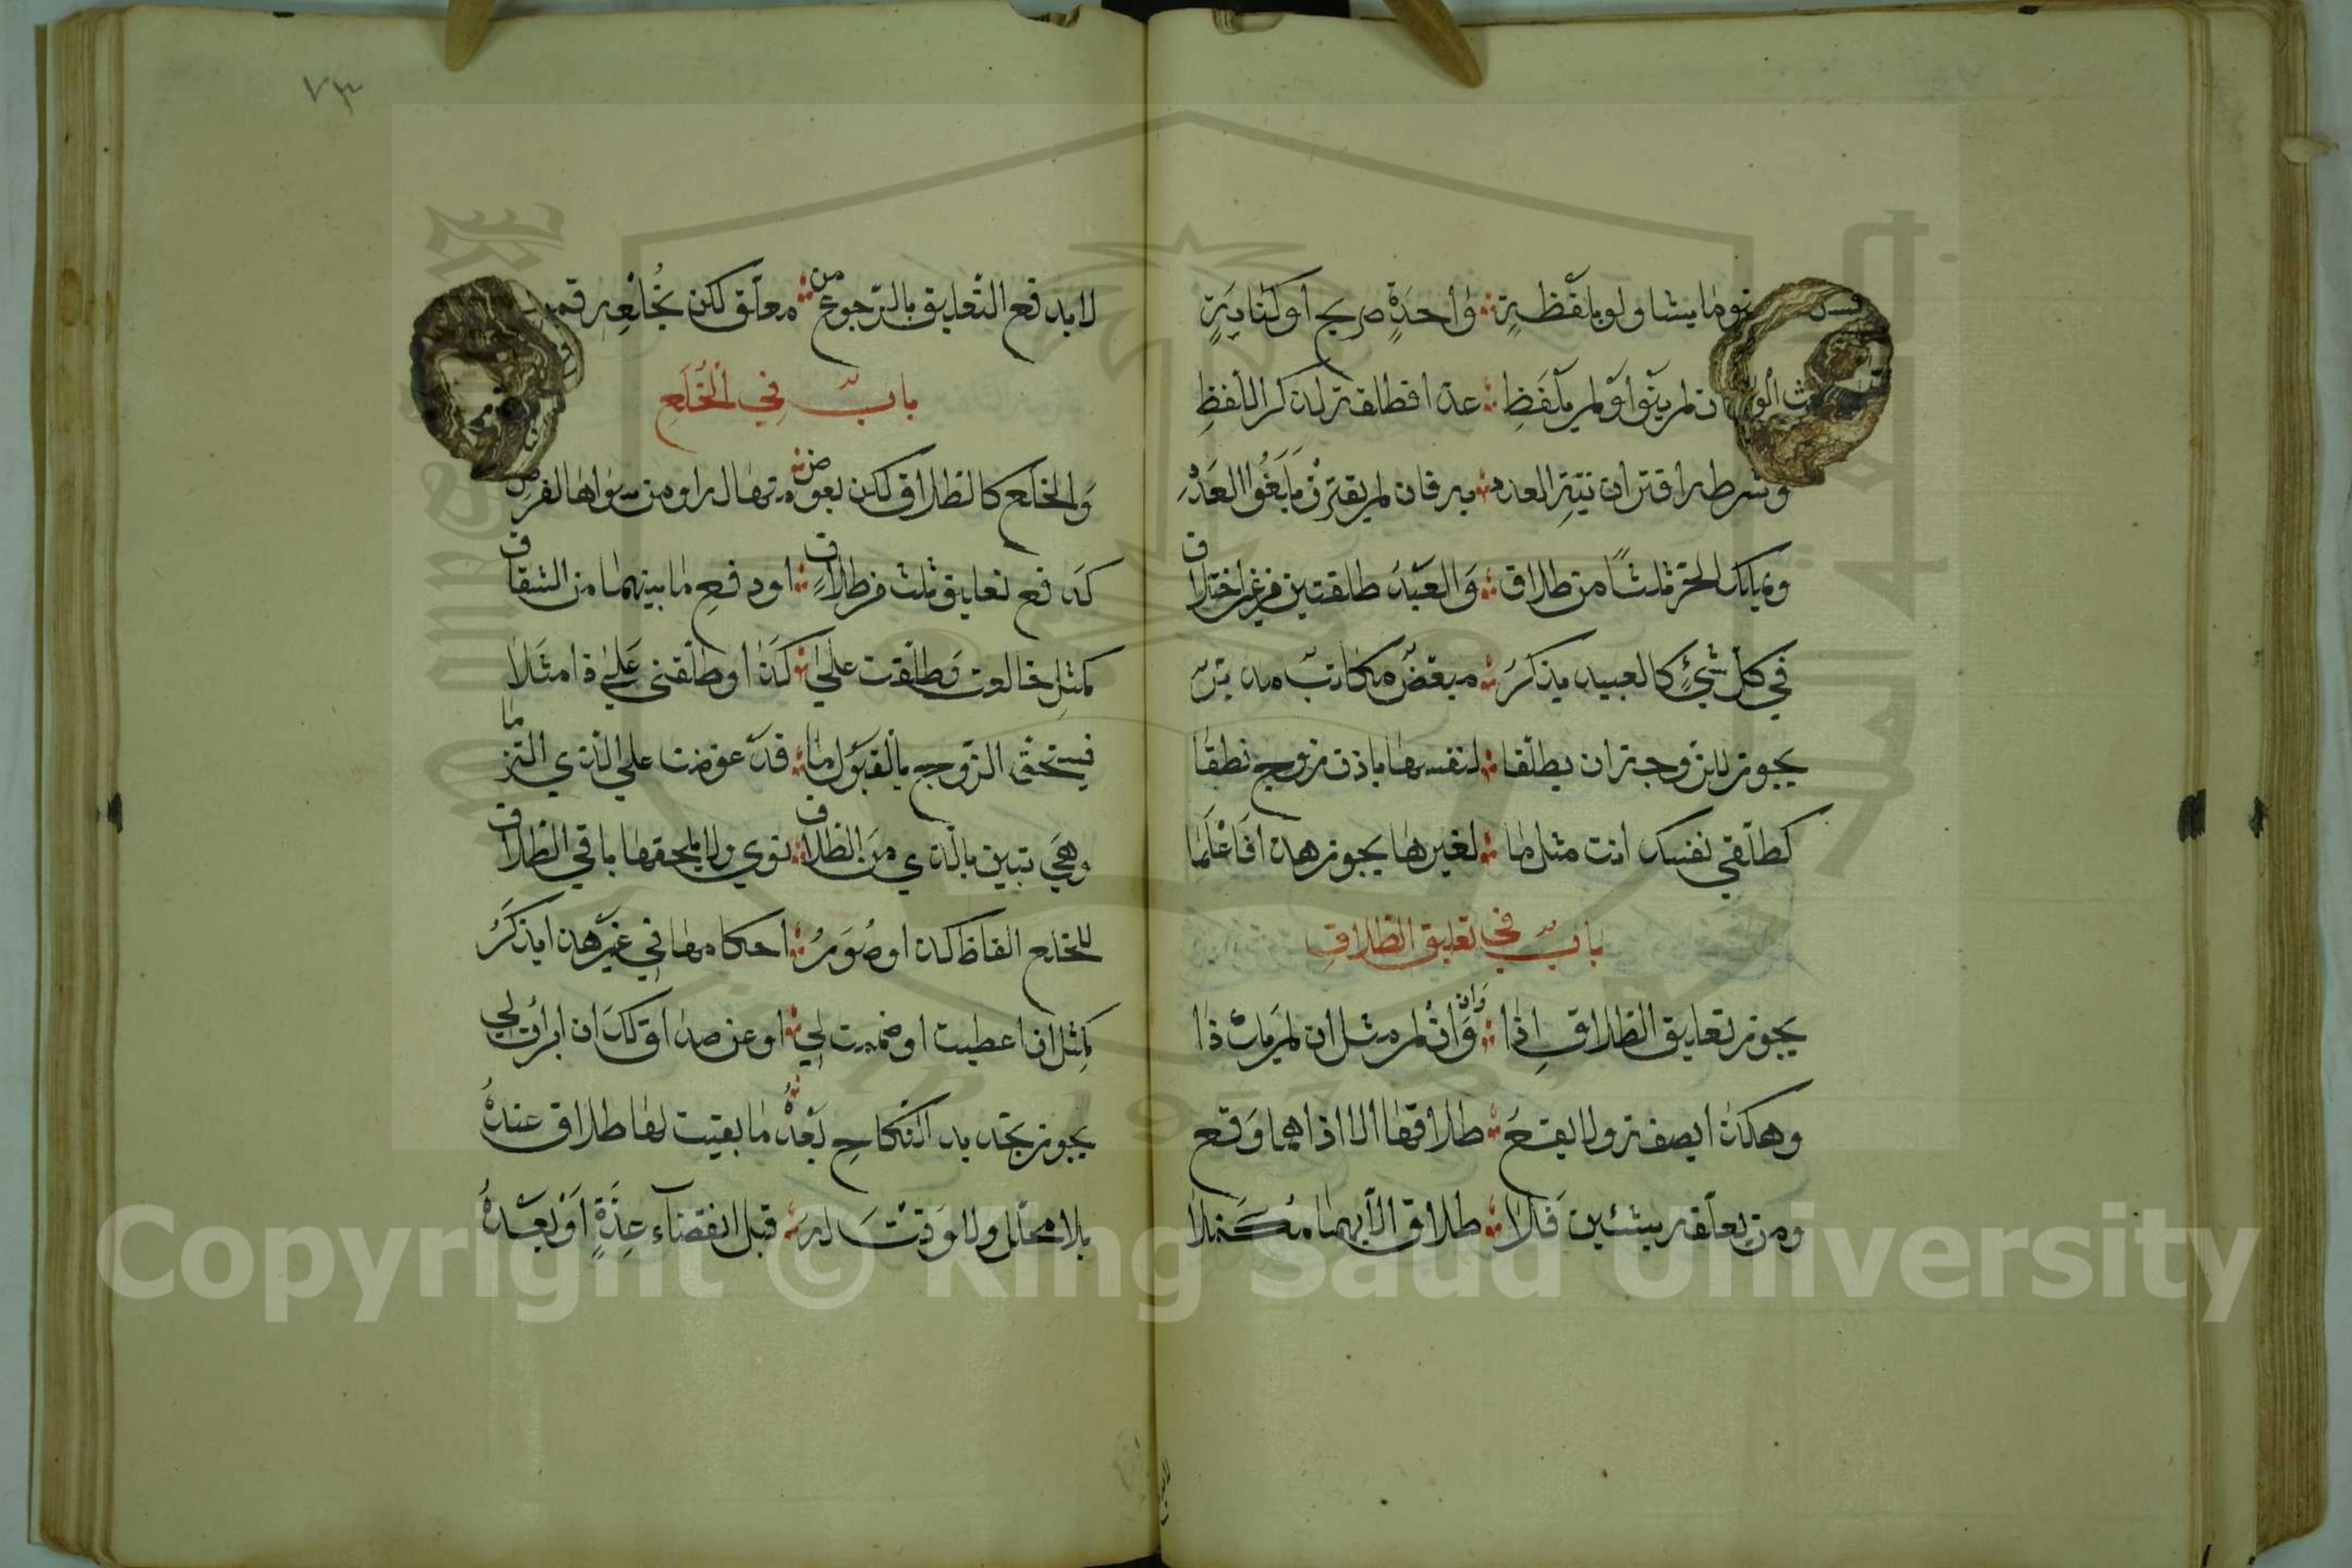 ينو ما يشا ولو بلفظية واحدة صريح او كناية
ان لم ينو او لم يلفظ عدا فطلقة لذكر اللفظ
وشرطه اقتران نية العدد به فان لم يقترن ما بغوا العدد
ويملك الحر ثلثا من طلاق والعبد طلقتين في غير اختلاف
في كل شيء كالعبيد يذكر مبعض مكاتب مدبر
يجوز للزوجة ان يطلقا لنفسها باذن زوج نطقا
كطلقي نفسك انت مثل ما لغيرها يجوز هذا فاعلما
باب في تعليق الطلاق
يجوز تعليق الطلاق اذا وان وان لم مثل ان لم يات ذا
وهكذا بصفة ولا يقع طلاقها الا اذا هما وقع
ومن يعلقه بشئين فلا طلاق الا بهما مكملا
٧٣
لا يدفع التعليق بالرجوع من معلق لكن بخلعه
باب في الخلع
والخلع كالطلاق لكن بعوض منها له او من سواها الفرض
كدفع تعليق ثلث في طلاق او دفع ما بينهما من الشقاق
كمثل خالعت وطلقت على كذا او طلقني على ذا مثلا
فيستحق الزوج بالقبول ما قد عوضت على الذي التزما
وهي تبين بالذي من الطلاق نوي ولا يلحقها باقي الطلاق
للخلع الفاظ كذا وصور احكامها في غير هذا يذكر
كمثل ان اعطيت او ضمنت لي او عن صداق لك ان ابرات لي
يجوز تجديد النكاح بعده ما بقيت لها طلاق عنده
بلا محلل ولا وقت له قبل انقضاء عدة او بعده
Copyright © King Saud University